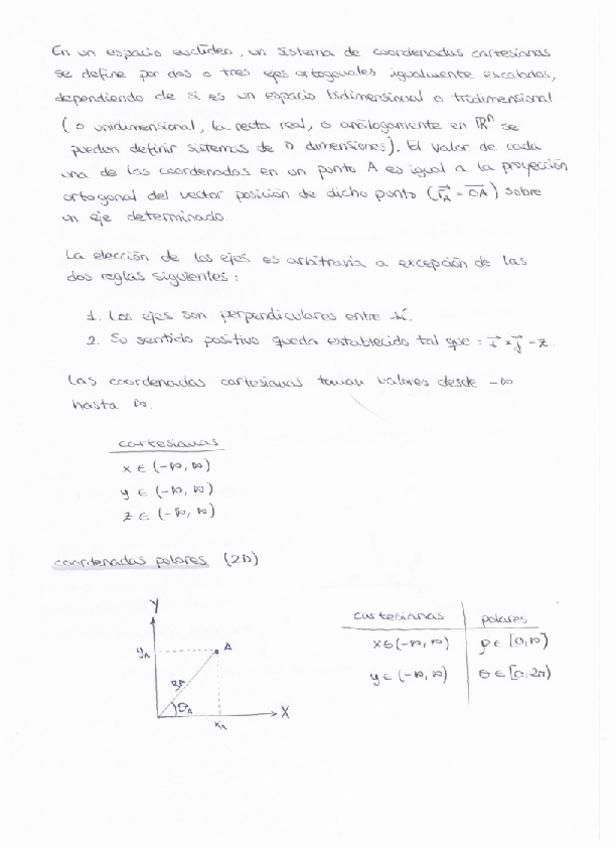 En un espacio euclídeo, un sistema de coordenadas cartesianas
se define por dos o tres ejes ortogonales igualmente escalados,
dependiendo de si es un espacio bidimensional o tridimensional
(o unidimensional, la recta real, o análogamente en ℝⁿ se
pueden definir sistemas de n dimensiones). El valor de cada
una de las coordenadas en un punto A es igual a la proyección
ortogonal del vector posición de dicho punto (r⃗_A = OA) sobre
un eje determinado.
La elección de los ejes es arbitraria a excepción de las
dos reglas siguientes:
1. Los ejes son perpendiculares entre sí.
2. Su sentido positivo queda establecido tal que: i⃗ × j⃗ = z.
Las coordenadas cartesianas toman valores desde -∞
hasta ∞.
cartesianas
x ∈ (-∞, ∞)
y ∈ (-∞, ∞)
z ∈ (-∞, ∞)
coordenadas polares (2D)
Y
y_A
A
θ_A
X
x_A
cartesianas polares
x ∈ (-∞, ∞) ρ ∈ [0, ∞)
y ∈ (-∞, ∞) θ ∈ [0, 2π)